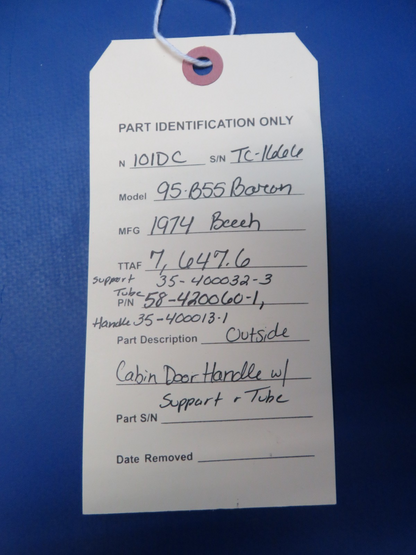 PART IDENTIFICATION ONLY
N 101DC S/N TC-1666
Model 95-B55 Baron
MFG 1974 Beech
TTAF 7,647.6
Support 35-400032-3
Tube
P/N 58-420060-1,
Handle 35-400013-1
Part Description Outside
Cabin Door Handle w/
Support & Tube
Part S/N
Date Removed